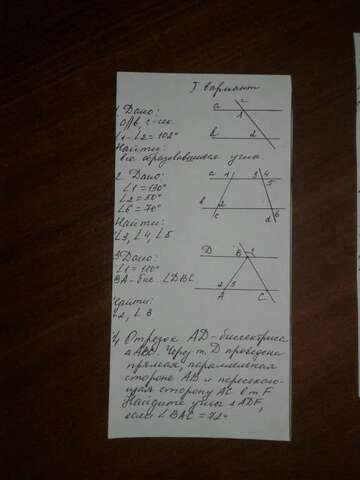 I вариант
1. Дано:
a∥b, c-сек.
∠1-∠2=102°
Найти:
все образовавшиеся углы
c
a
1
b
2
2. Дано:
∠1=130°
∠2=50°
∠6=70°
Найти:
∠3, ∠4, ∠5
a 1 3 4
5
b 2 6
c d
3 Дано:
∠1=110°
BA-бис. ∠DBC
Найти:
∠2, ∠3
D B 1
2 3
A C
4. Отрезок AD-биссектриса
△ABC. Через т. D проведена
прямая, параллельная
стороне AB и пересекаю-
щая сторону AC в т. F
Найдите углы △ADF,
если ∠BAC=72°